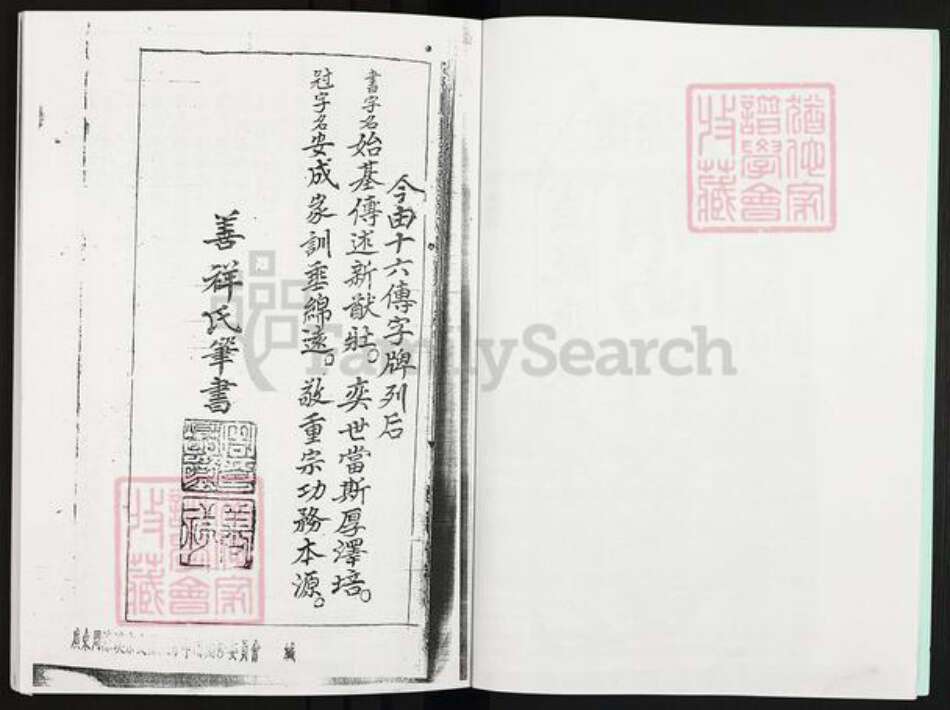 今由十六傳字牌列后
書字名始基傳述新猷壯。奕世當斯厚澤培。
冠字名安成家訓垂綿遠。敬重宗功務本源。
善祥氏筆書
廣東周 委員會 編
猶他家譜學會收藏
FamilySearch